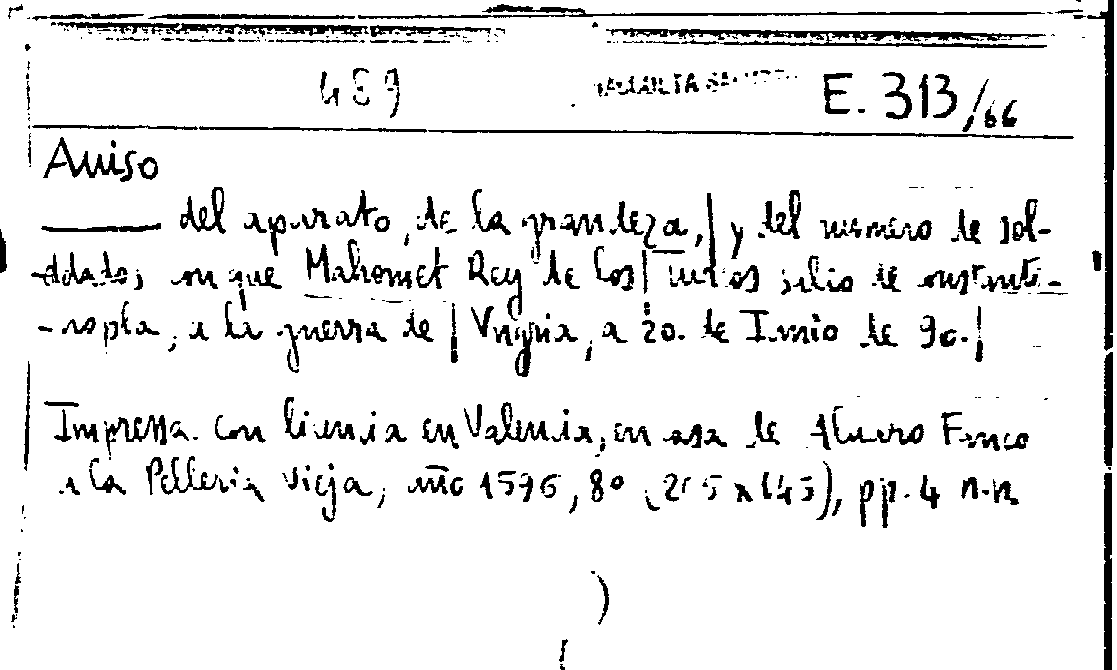 489 E. 313/66
Auiso
del aparato, de la grandeza, | y del numero de sol-
-dados, con que Mahomet Rey de los | Turcos salio de Constanti-
-nopla, a la guerra de | Vngria, a 20. de Iunio de 96. |
Impressa con licencia en Valencia, en casa de Aluaro Franco
a la Pelleria vieja, año 1596, 8º (205x145), pp. 4 n.n